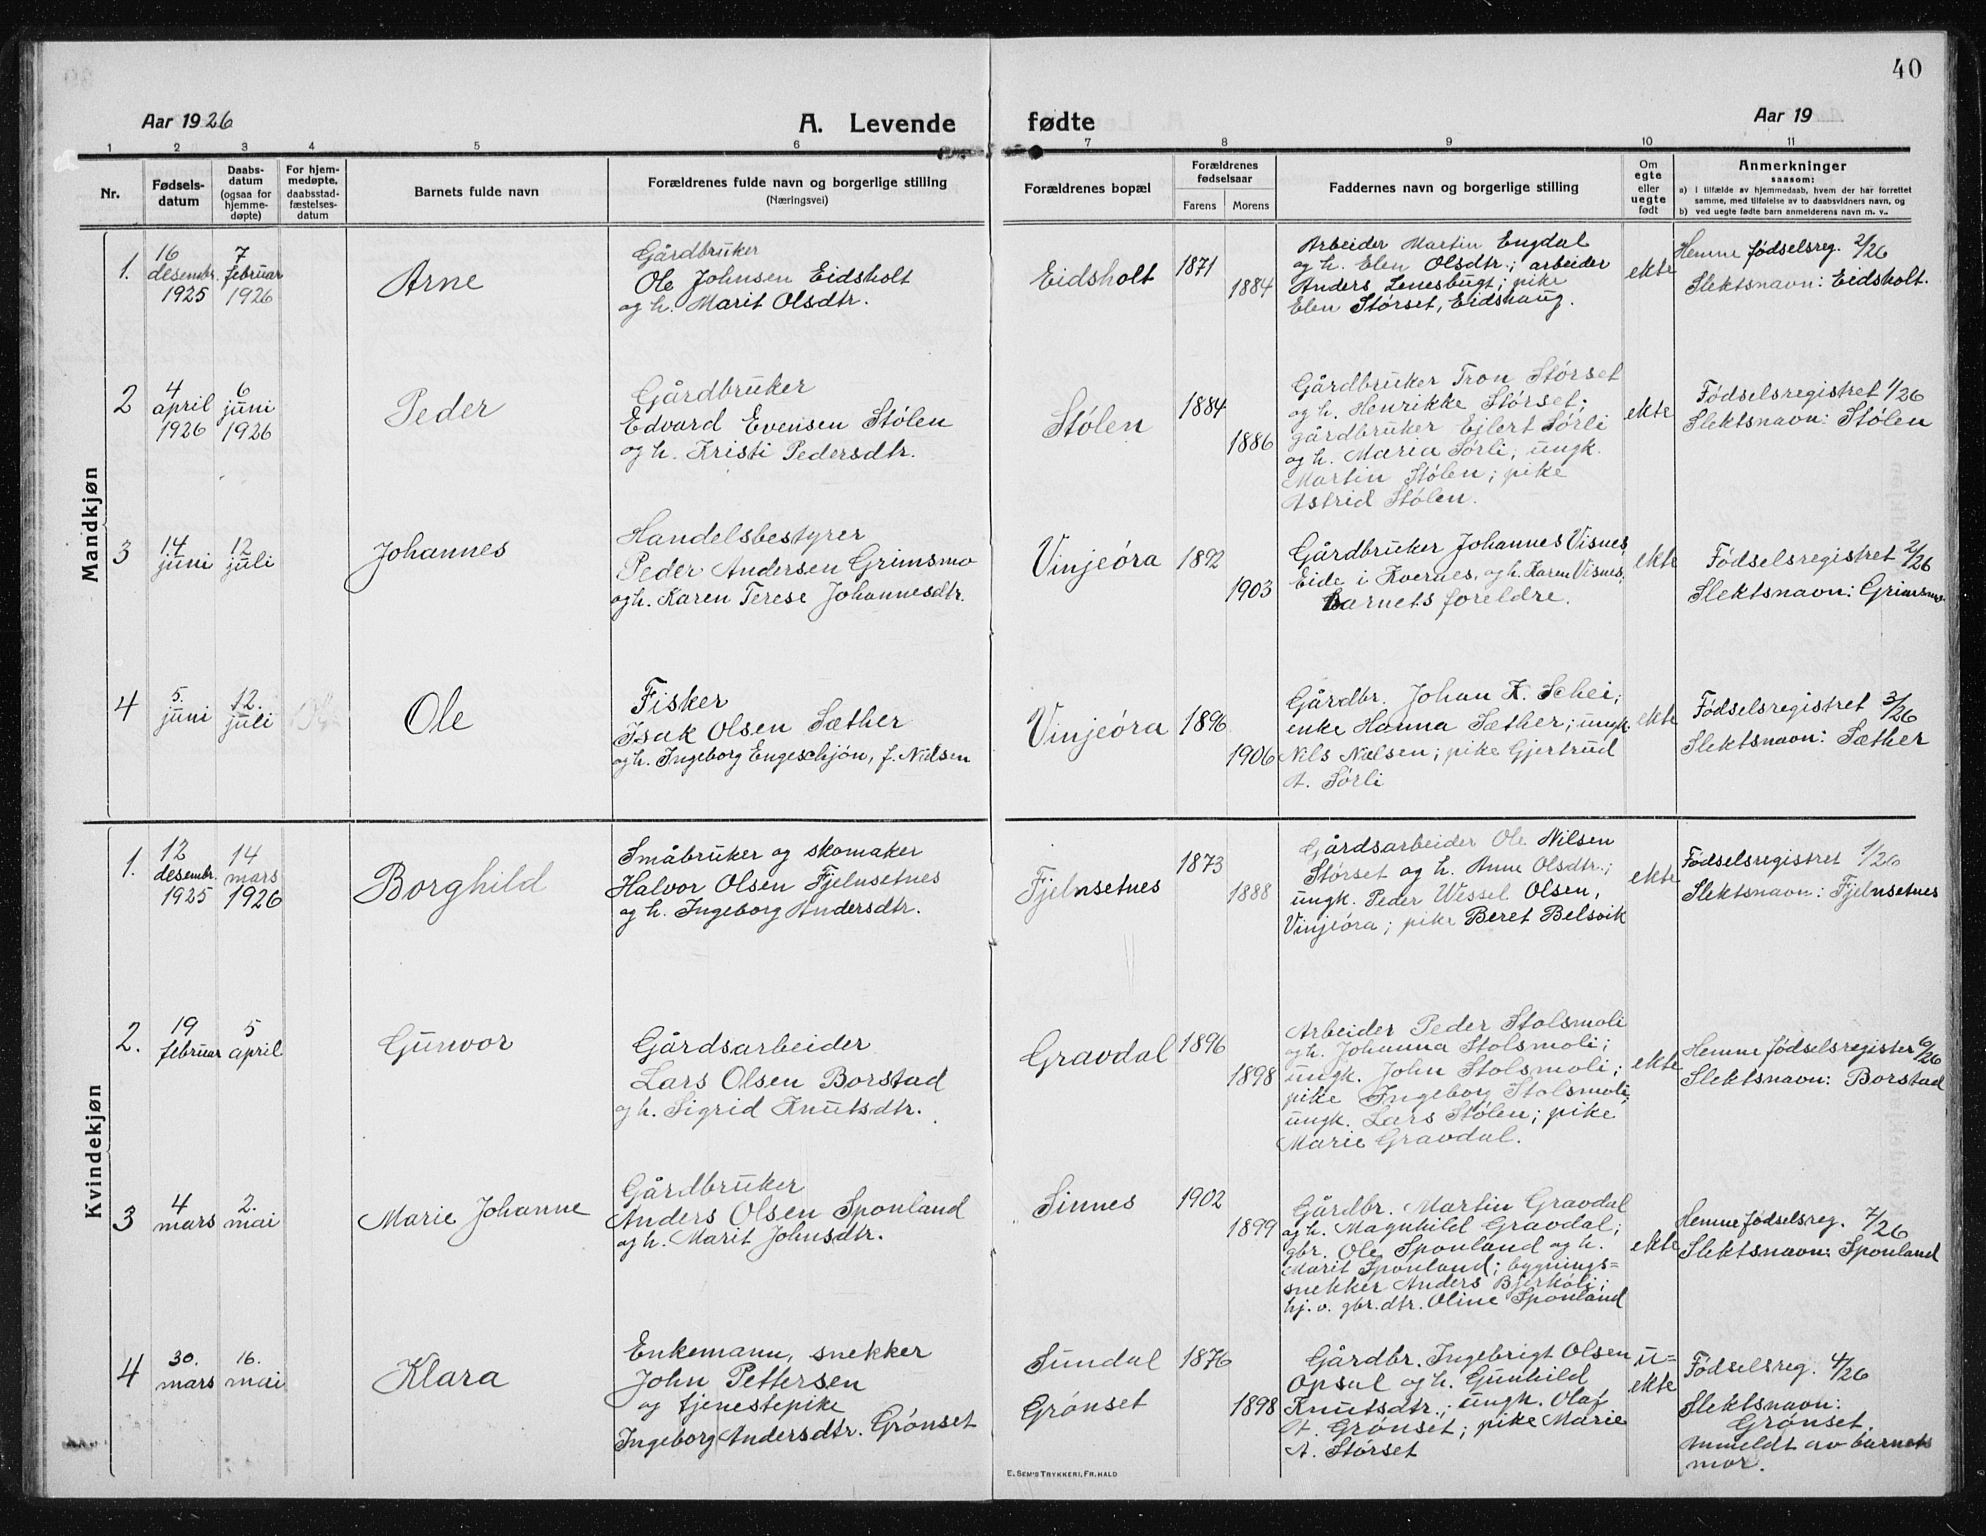 40
Aar 1926
A. Levende
fødte
Aar 19
1 2 3 4 5 6 7 8 9 10 11
Nr.
Fødsels-
datum
Daabs-
datum
(ogsaa for
hjemme-
døpte)
For hjem-
medøpte,
daabsstad-
fæstelses-
datum
Barnets fulde navn
Forældrenes fulde navn og borgerlige stilling
(Næringsvei)
Forældrenes bopæl
Forældrenes
fødselsaar
Farens Morens
Faddernes navn og borgerlige stilling
Om
egte
eller
uegte
født
Anmerkninger
saasom:
a) I tilfælde av hjemmedaab, hvem der har forrettet
samme, med tilføielse av to daabsvidners navn, og
b) ved uegte fødte barn anmelderens navn m. v..
Mandkjøn
1.
16
desembr.
1925
7
februar
1926
Arne
Gårdbruker
Ole Johnsen Eidsholt
og h. Marit Olsdtr.
Eidsholt
1871
1884
Arbeider Martin Engdal
og h. Elen Olsdtr.; arbeider
Anders Lenesbugt; pike
Elen Störset, Eidshaug.
ekte
Hemne fødselsreg. 2/26
Slektsnavn: Eidsholt.
2
4
april
1926
6
juni
1926
Peder
Gårdbruker
Edvard Evensen Stölen
og h. Kristi Pedersdtr.
Stölen
1884
1886
Gårdbruker Tron Störset
og h. Henrikke Störset;
gårdbruker Ejlert Sörli
og h. Maria Sörli; ungk.
Martin Stölen; pike
Astrid Stölen.
ekte
Födselsregistret 1/26
Slektsnavn: Stölen
3
14
juni
12
juli
Johannes
Handelsbestyrer
Peder Andersen Grimsmo
og h. Karen Terese Johannesdtr.
Vinjeöra
1892
1903
Gårdbruker Johannes Visnes,
Eide i Kvernes, og h. Karen Visnes,
Barnets foreldre.
ekte
Födselsregistret 2/26
Slektsnavn: Grimsmo
4
5.
juni
12.
juli
Ole
Fisker
Isak Olsen Sæther
og h. Ingeborg Engeschjön, f. Nilsen
Vinjeöra
1896
1906
Gårdbr. Johan K. Schei;
enke Hanna Sæther; ungk.
Nils Nilsen; pike Gjertrud
A. Sörli
ekte
Födselsregistret 3/26
Slektsnavn: Sæther
Kvindekjøn
1.
12
desembr.
1925
14
mars
1926
Borghild
Småbruker og skomaker
Halvor Olsen Fjelnsetnes
og h. Ingeborg Andersdtr.
Fjelnsetnes
1873
1888
Gårdsarbeider Ole Nilsen
Störset og h. Anne Olsdtr.;
ungk. Peder Wessel Olsen,
Vinjeöra; pike Beret Belsvik
ekte
Födselsregistret 1/26
Slektsnavn: Fjelnsetnes
2.
19
februar
5
april
Gunvor
Gårdsarbeider
Lars Olsen Borstad
og h. Sigrid Knutsdtr.
Gravdal
1896
1898
Arbeider Peder Stolsmoli
og h. Johanna Stolsmoli;
ungk. John Stolsmoli;
pike Ingeborg Stolsmoli,
ungk. Lars Stölen; pike
Marie Gravdal.
ekte
Hemne födselsregister 6/26
Slektsnavn: Borstad
3
4
mars
2.
mai
Marie Johanne
Gårdbruker
Anders Olsen Sponland
og h. Marit Johnsdtr.
Sinnes
1902
1899
Gårdbr. Martin Gravdal
og h. Magnhild Gravdal;
gbr. Ole Sponland og h.
Marit Sponland; bygnings=
snekker Anders Bjerköli;
hj. v. gbr.dtr. Oline Sponland
ekte
Hemne födselsreg. 7/26
Slektsnavn: Sponland
4
30.
mars
16.
mai
Klara
Enkemann, snekker
John Pettersen
og tjenestepike
Ingeborg Andersdtr. Grönset
Sundal
Grönset
1876
1898
Gårdbr. Ingebrigt Olsen
Opsal og h. Gunhild
Knutsdtr.; ungk. Olaf
A. Grönset; pike Marie
A. Störset
u=
ekte
Födselsreg. 4/26
Slektsnavn:
Grönset.
Anmeldt av barnets
mor.
E. SEM'S TRYKKERI, FR.HALD